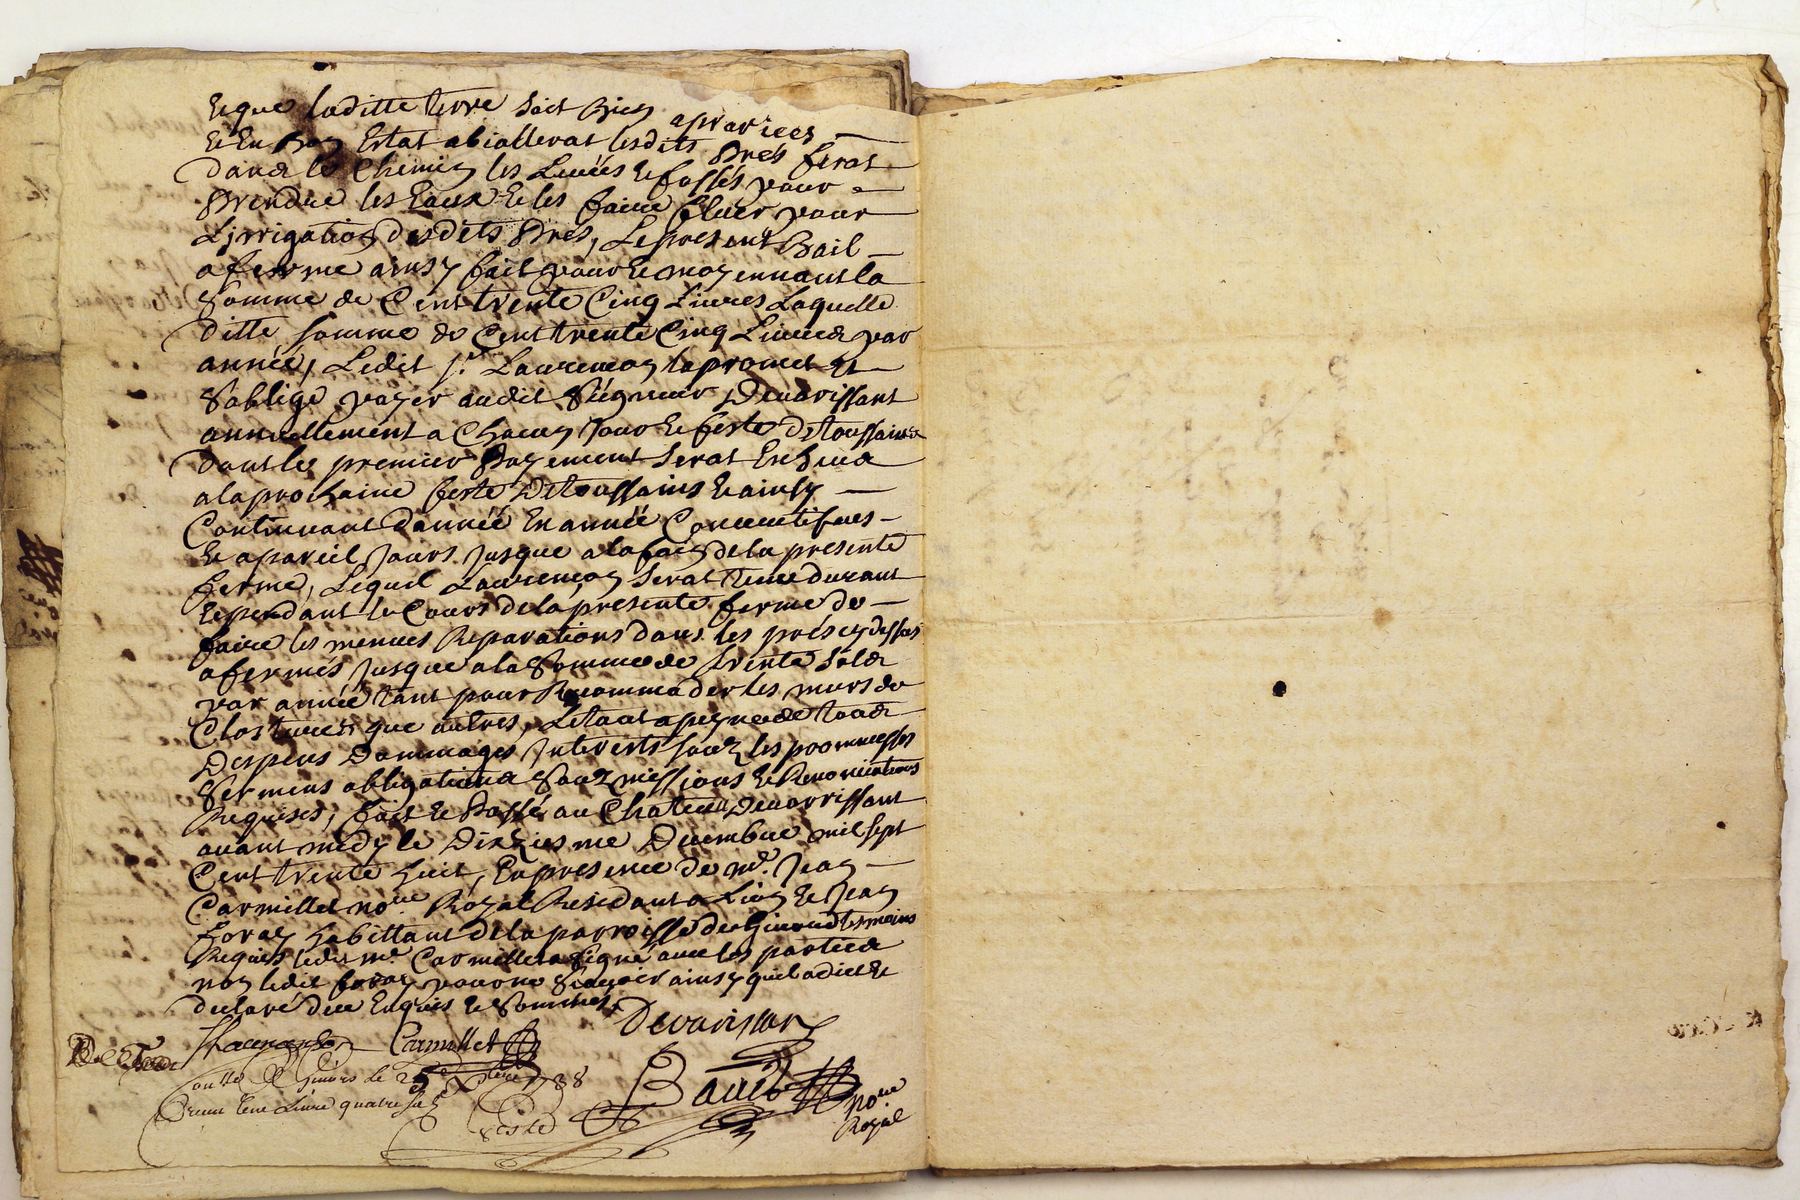 Et que laditte terre soit Bien apraviees
Et En Bon Estat abiallerat lesdits Prés ferat
dans les Chemin les Levées Et fossés pour
Prendre les Eaux Et les faire fluer pour
Lirrigation desdits Prés, Le present Bail
a ferme ainsy fait pour Et moyennant la
Somme de Cent trente Cinq Livres Laquelle
ditte somme de Cent trente Cinq Livres par
année, Ledit sr. Laurençon la promet Et
Soblige payer audit Seigneur Devarissant
annuellement a Chacun Jour Et feste De toussains
dont le premier Payement Serat Escheus
a la prochaine feste De toussains Et ainsy
Continuant dannée En année Consecutifves
Et a pareil Jours Jusque a la fin de la presente
ferme, Lequel Laurençon Serat tenu durant
Et pendant le Cours de la presente ferme de
faire les menues Reparations dans les prés cy dessus
afermés Jusque a la Somme de trente Sols
par année tant pour Racommoder les murs de
Closture que autres, Le tout a peyne de tous
Despens Dommages Interests sous les promesses
Sermens obligations Soumissions Et Renonciations
Requises, fait Et Passé au Chateau Devarrissant
avant midy le Dixiesme Decembre mil sept
Cent trente huit, En presence de Me. Jean
Carmillet nore Royal Residant a Lion Et Jean
foray habittant de la parroisse de tesmoins
Requis ledit Me. Carmillet a Signé avec les parties
non ledit foray pour ne Sçavoir ainsy quil a dit Et
declaré de ce Enquis Et Sommés
Devarissan
Carmillet
le 25e 1738
Receu une Livre quatre
Bavet
nore
Royal